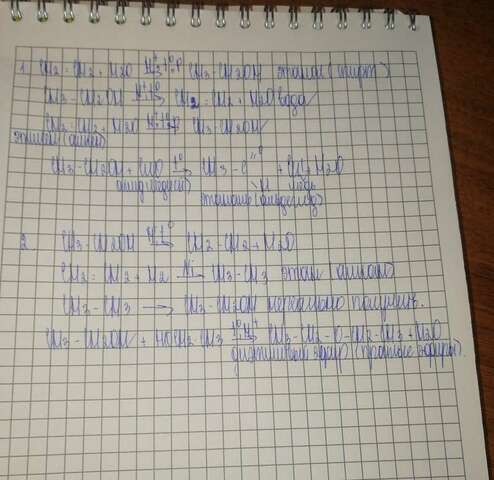 1. CH2 = CH2 + H2O H+, t°, p CH3 - CH2OH этанол (спирт)
CH3 - CH2OH H+, t° CH2 = CH2 + H2O вода
CH2 = CH2 + H2O H+, t°, p CH3 - CH2OH
этилен (алкен)
CH3 - CH2OH + CuO t° → CH3 - C = O + Cu + H2O
H медь
этаналь (альдегид)
2. CH3 - CH2OH H+, t° → CH2 - CH2 + H2O
CH2 = CH2 + H2 Ni → CH3 - CH3 этан алкан
CH3 - CH3 → CH3 - CH2OH
CH3 - CH2OH + HOCH2 CH3 t°, H+ → CH3 - CH2 - O - CH2 - CH3 + H2O
диэтиловый эфир (простые эфиры).